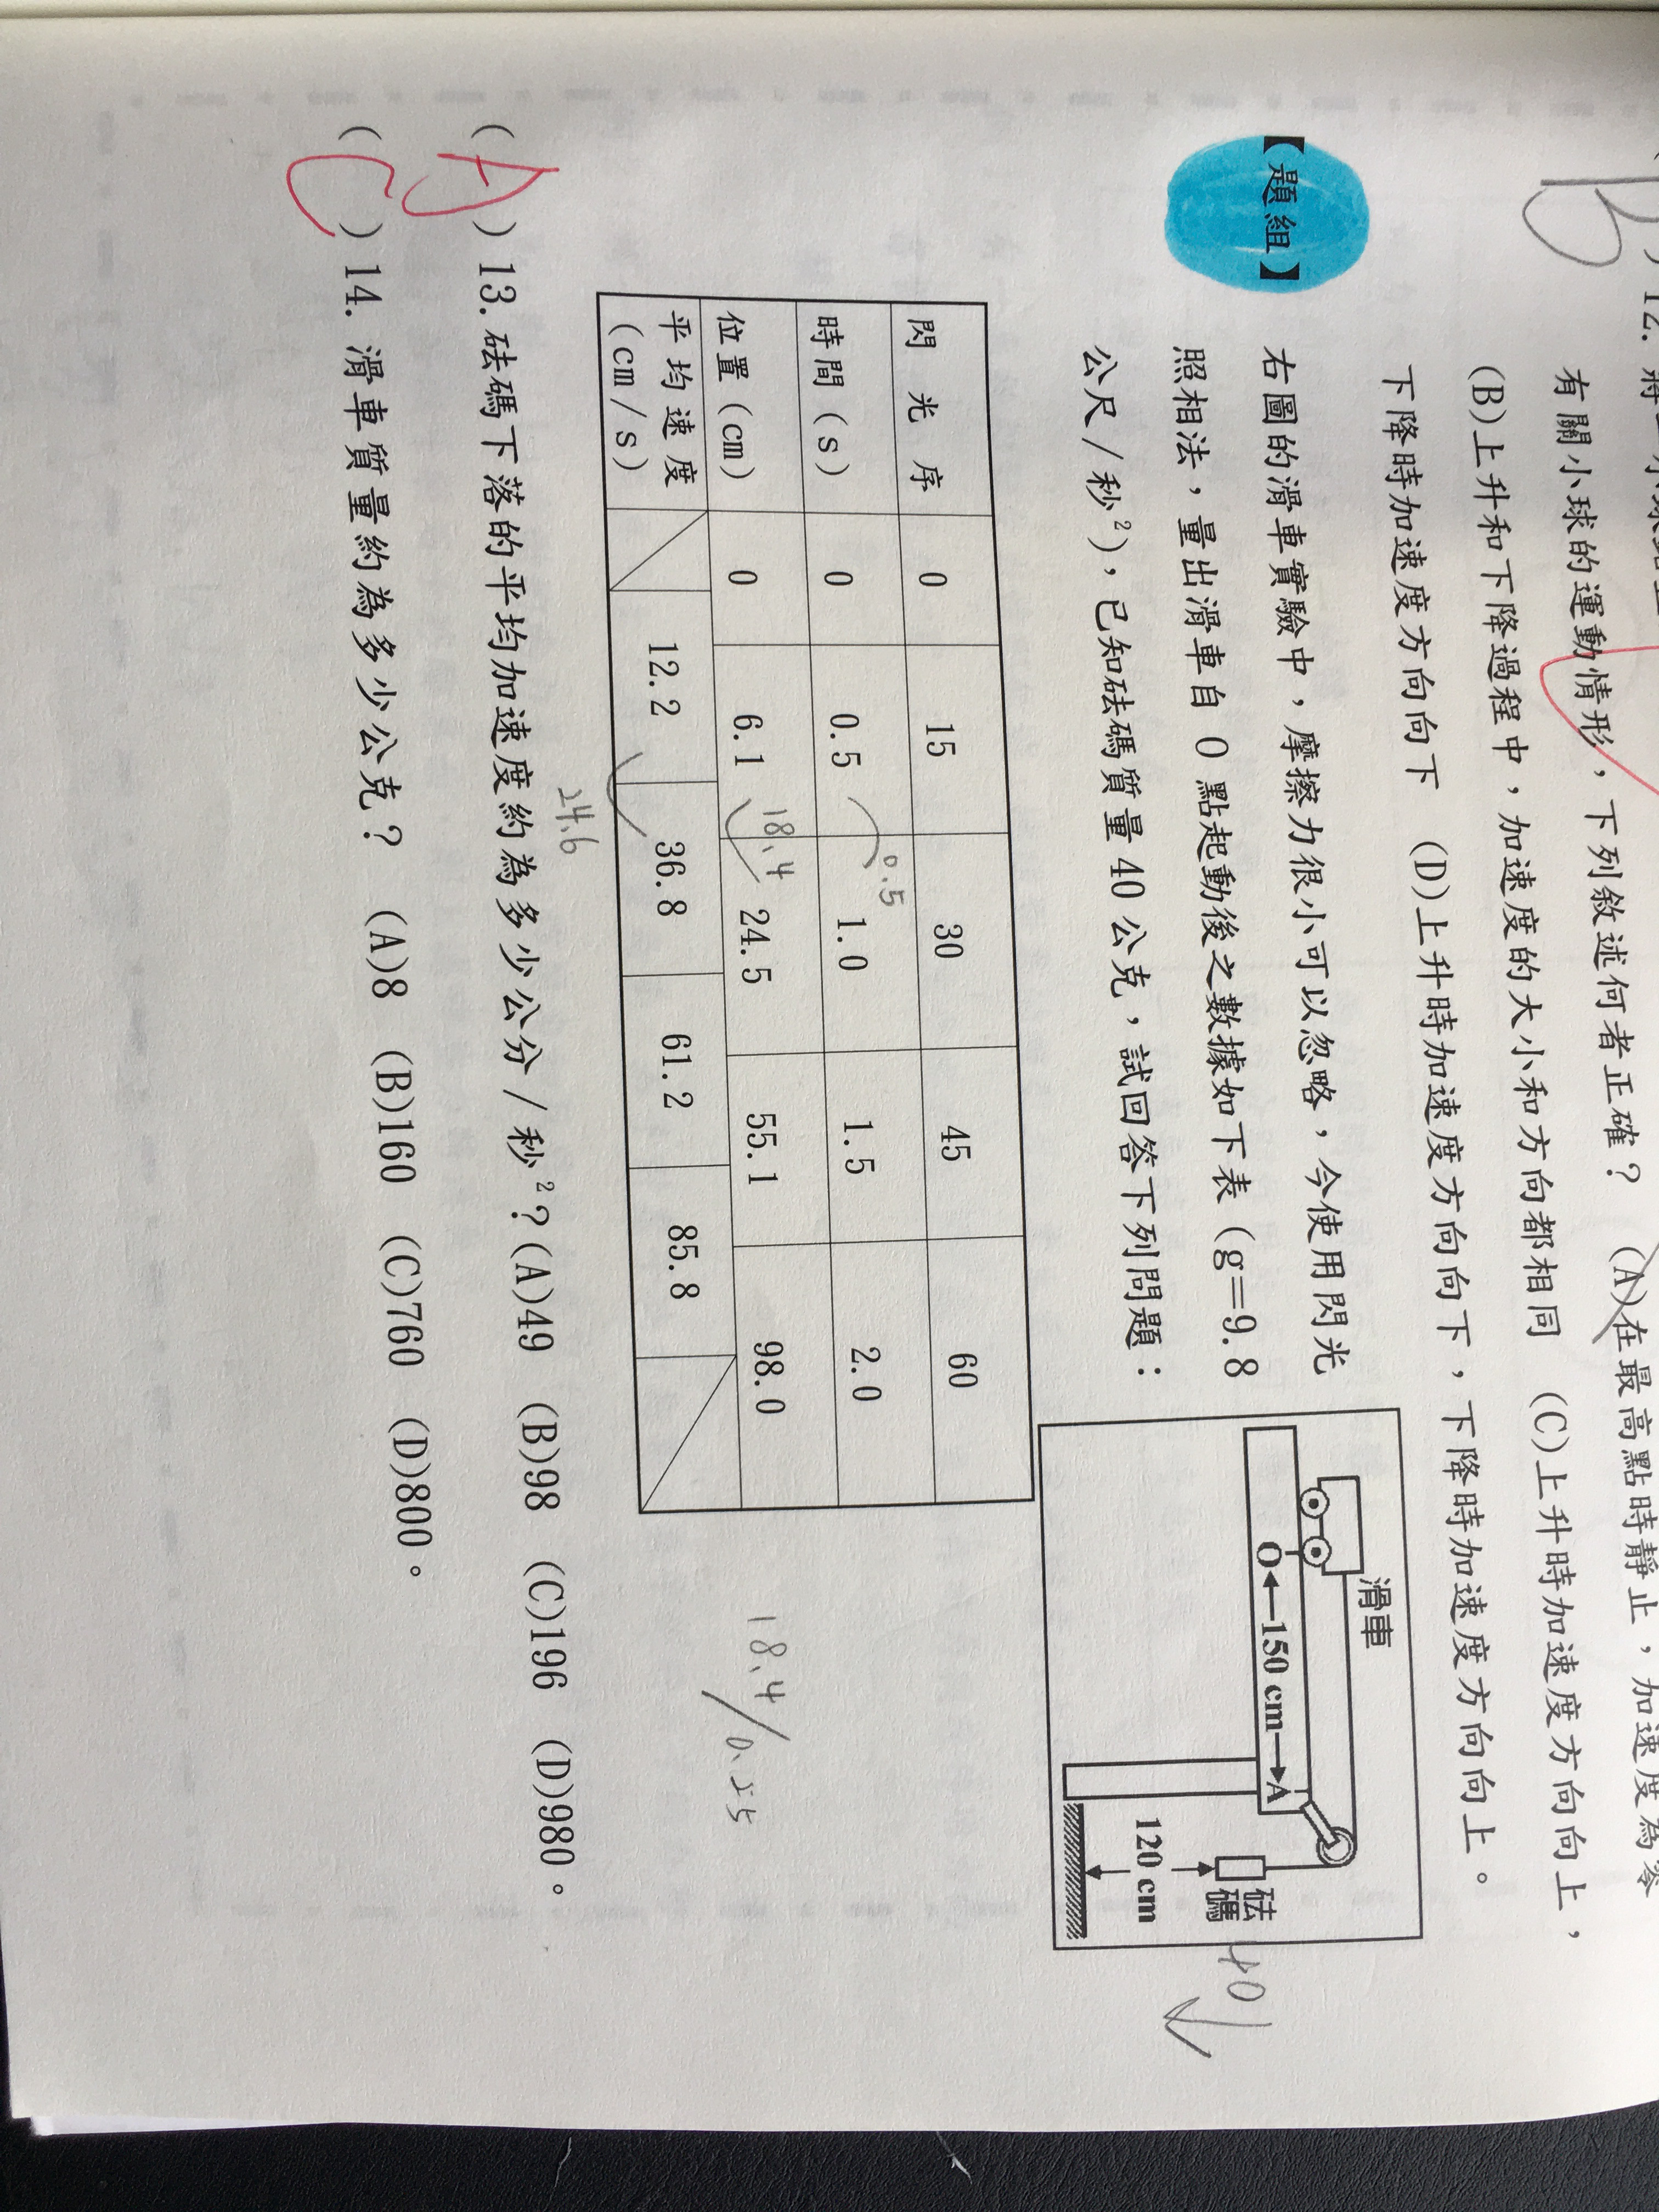 B
12.
有關小球的運動情形，下列敘述何者正確？ (A)在最高點時靜止，加速度為零
(B)上升和下降過程中，加速度的大小和方向都相同 (C)上升時加速度方向向上，
下降時加速度方向向下 (D)上升時加速度方向向下，下降時加速度方向向上。
【題組】
右圖的滑車實驗中，摩擦力很小可以忽略，今使用閃光
照相法，量出滑車自 O 點起動後之數據如下表（g＝9.8
公尺/秒²），已知砝碼質量 40 公克，試回答下列問題：
滑車
O←150 cm→A
120 cm
砝碼
40
閃光序 0 15 30 45 60
時間(s) 0 0.5 1.0 1.5 2.0
0.5
位置(cm) 0 6.1 24.5 55.1 98.0
18.4
平均速度
(cm/s) 12.2 36.8 61.2 85.8
24.6
18.4/0.25
(A)13. 砝碼下落的平均加速度約為多少公分/秒²？(A)49 (B)98 (C)196 (D)980。
(C)14. 滑車質量約為多少公克？ (A)8 (B)160 (C)760 (D)800。